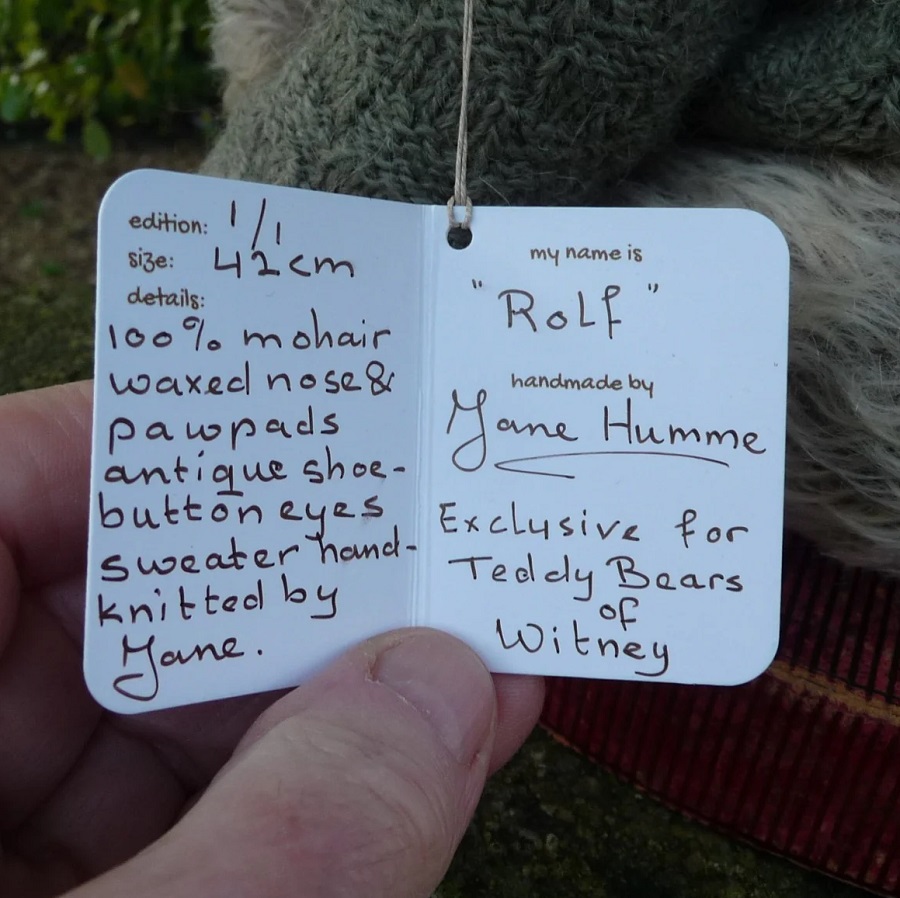 edition: 1/1
size: 42cm
details:
100% mohair
waxed nose &
pawpads
antique shoe-
button eyes
sweater hand-
knitted by
Jane.
my name is
"Rolf"
handmade by
Jane Humme
Exclusive for
Teddy Bears
of
Witney